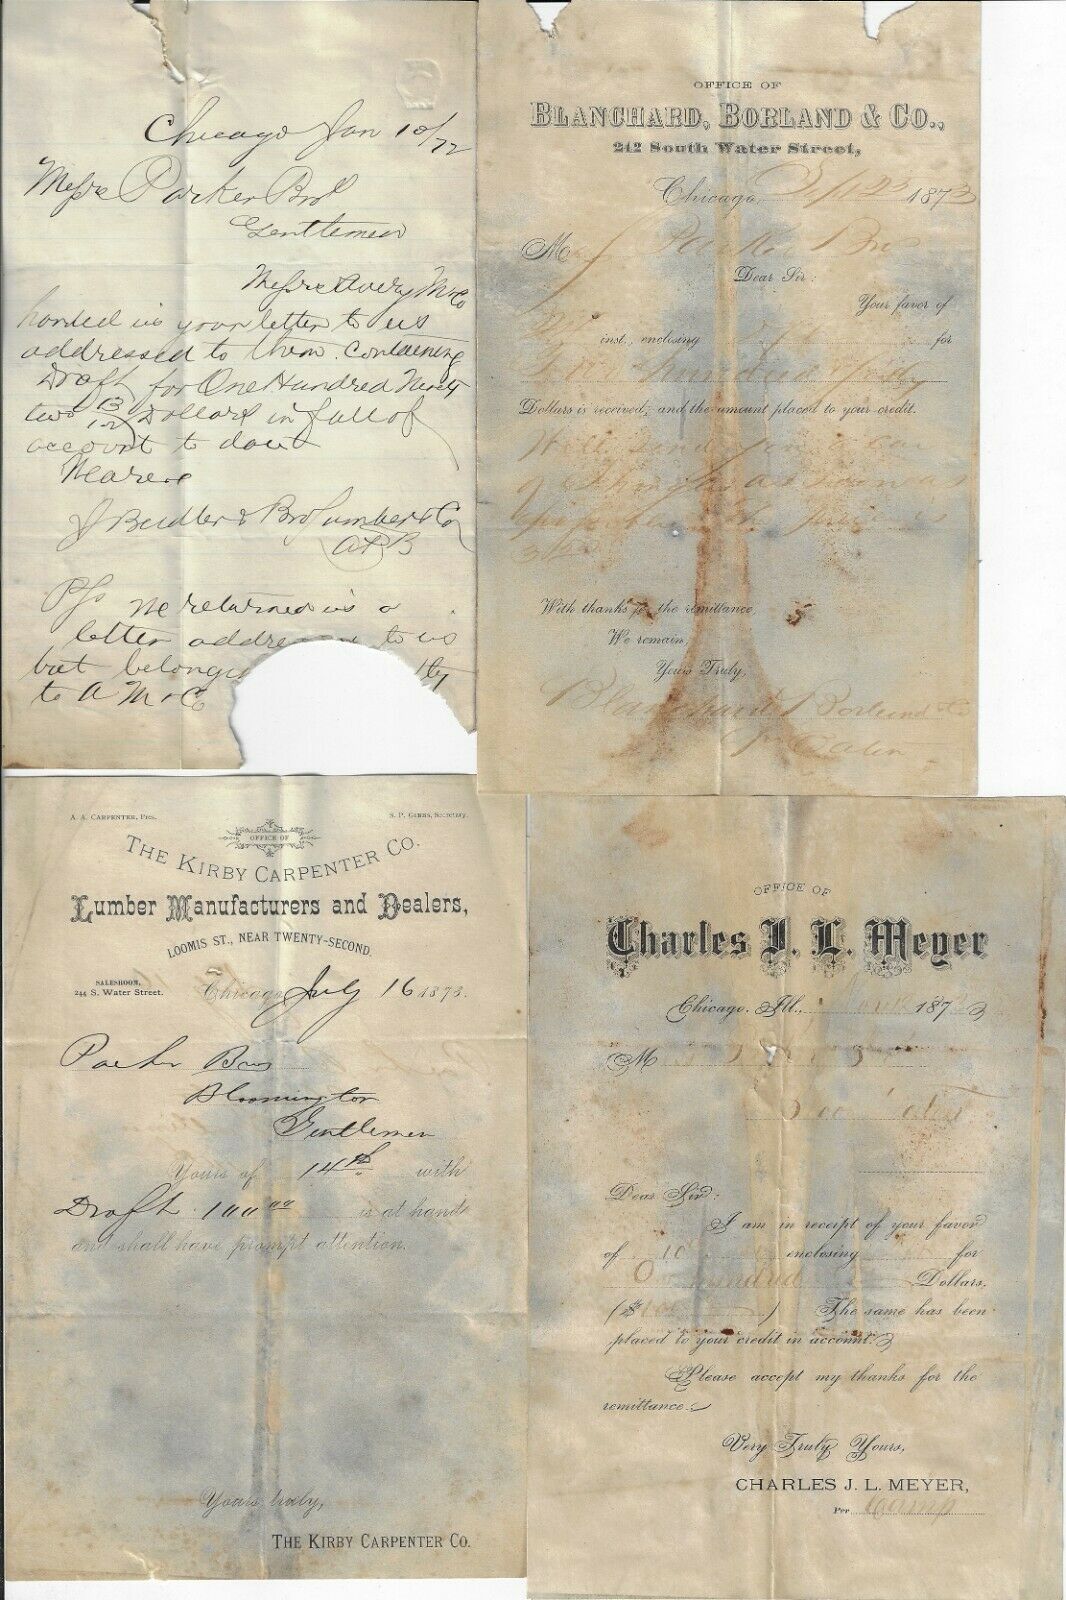 Chicago Jan 10/72
Messrs Parker Bros
Gentlemen
Messrs Avery M & Co
handed us your letter to us
addressed to them containing
Draft for One Hundred Ninety
two 13/100 Dollars in full of
account to date
J Beidler & Bro Lumber & Co
P/s We returned us a
letter addre to us
but belongi tly
to A M & Co
OFFICE OF
BLANCHARD, BORLAND & CO.,
242 South Water Street,
Chicago, 25 1873
M Parker Bros
Dear Sir:
Your favor of
inst., enclosing Dft for
Two hundred & fifty
Dollars is received, and the amount placed to your credit.
Will send you a car
of Shingles as soon as
possible
With thanks for the remittance,
We remain,
Yours Truly,
Blanchard Borland & Co
A. A. CARPENTER, Pres.
S. P. GIBBS, Secretary.
OFFICE OF
THE KIRBY CARPENTER CO.
Lumber Manufacturers and Dealers,
LOOMIS ST., NEAR TWENTY-SECOND.
SALESROOM,
244 S. Water Street.
Chicago, July 16 1873.
Parker Bros
Bloomington
Gentlemen
Yours of 14th with
Draft 100 00 is at hand
and shall have prompt attention.
Yours truly,
THE KIRBY CARPENTER CO.
OFFICE OF
Charles J. L. Meyer
Chicago, Ill., 187
M
Dear Sir:
I am in receipt of your favor
of 10 enclosing for
hundred Dollars,
($100 ) The same has been
placed to your credit in account.
Please accept my thanks for the
remittance.
Very Truly Yours,
CHARLES J. L. MEYER,
Per Camp